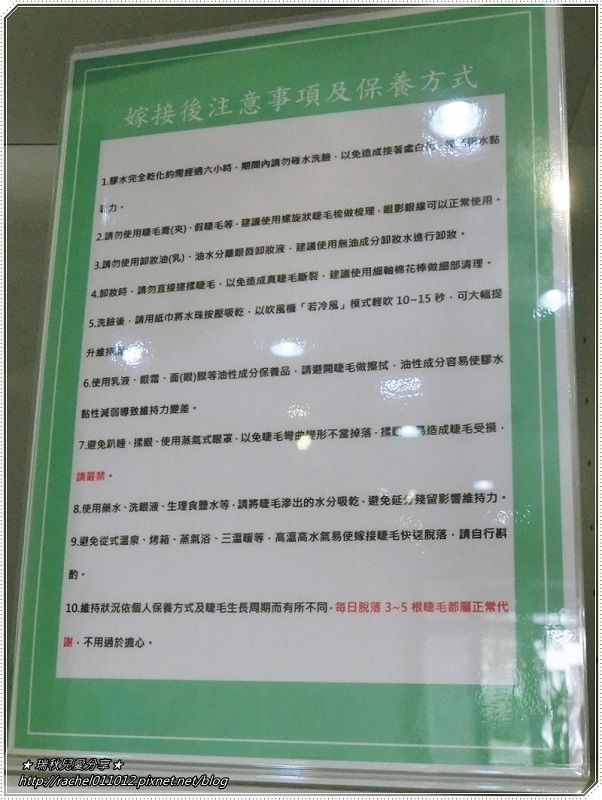 嫁接後注意事項及保養方式
1.膠水完全乾化約需經過六小時，期間內請勿碰水洗臉，以免造成接著處白化 水黏
力。
2.請勿使用睫毛膏(夾)、假睫毛等，建議使用螺旋狀睫毛梳做梳理，眼影眼線可以正常使用。
3.請勿使用卸妝油(乳)、油水分離眼唇卸妝液，建議使用無油成分卸妝水進行卸妝。
4.卸妝時，請勿直接搓揉睫毛，以免造成真睫毛斷裂，建議使用細軸棉花棒做細部清理。
5.洗臉後，請用紙巾將水珠按壓吸乾，以吹風機「若冷風」模式輕吹 10~15 秒，可大幅提
升維持
6.使用乳液、眼霜、面(眼)膜等油性成分保養品，請避開睫毛做擦拭，油性成分容易使膠水
黏性減弱導致維持力變差。
7.避免趴睡、揉眼、使用蒸氣式眼罩，以免睫毛彎曲變形不當掉落，揉 易造成睫毛受損，
請嚴禁。
8.使用藥水、洗眼液、生理食鹽水等，請將睫毛滲出的水分吸乾，避免延分殘留影響維持力。
9.避免從式溫泉、烤箱、蒸氣浴、三溫暖等，高溫高水氣易使嫁接睫毛快速脫落，請自行斟
酌。
10.維持狀況依個人保養方式及睫毛生長周期而有所不同，每日脫落 3~5 根睫毛都屬正常代
謝，不用過於擔心。
★ 瑞秋兒愛分享 ★
http://rachel011012.pixnet.net/blog